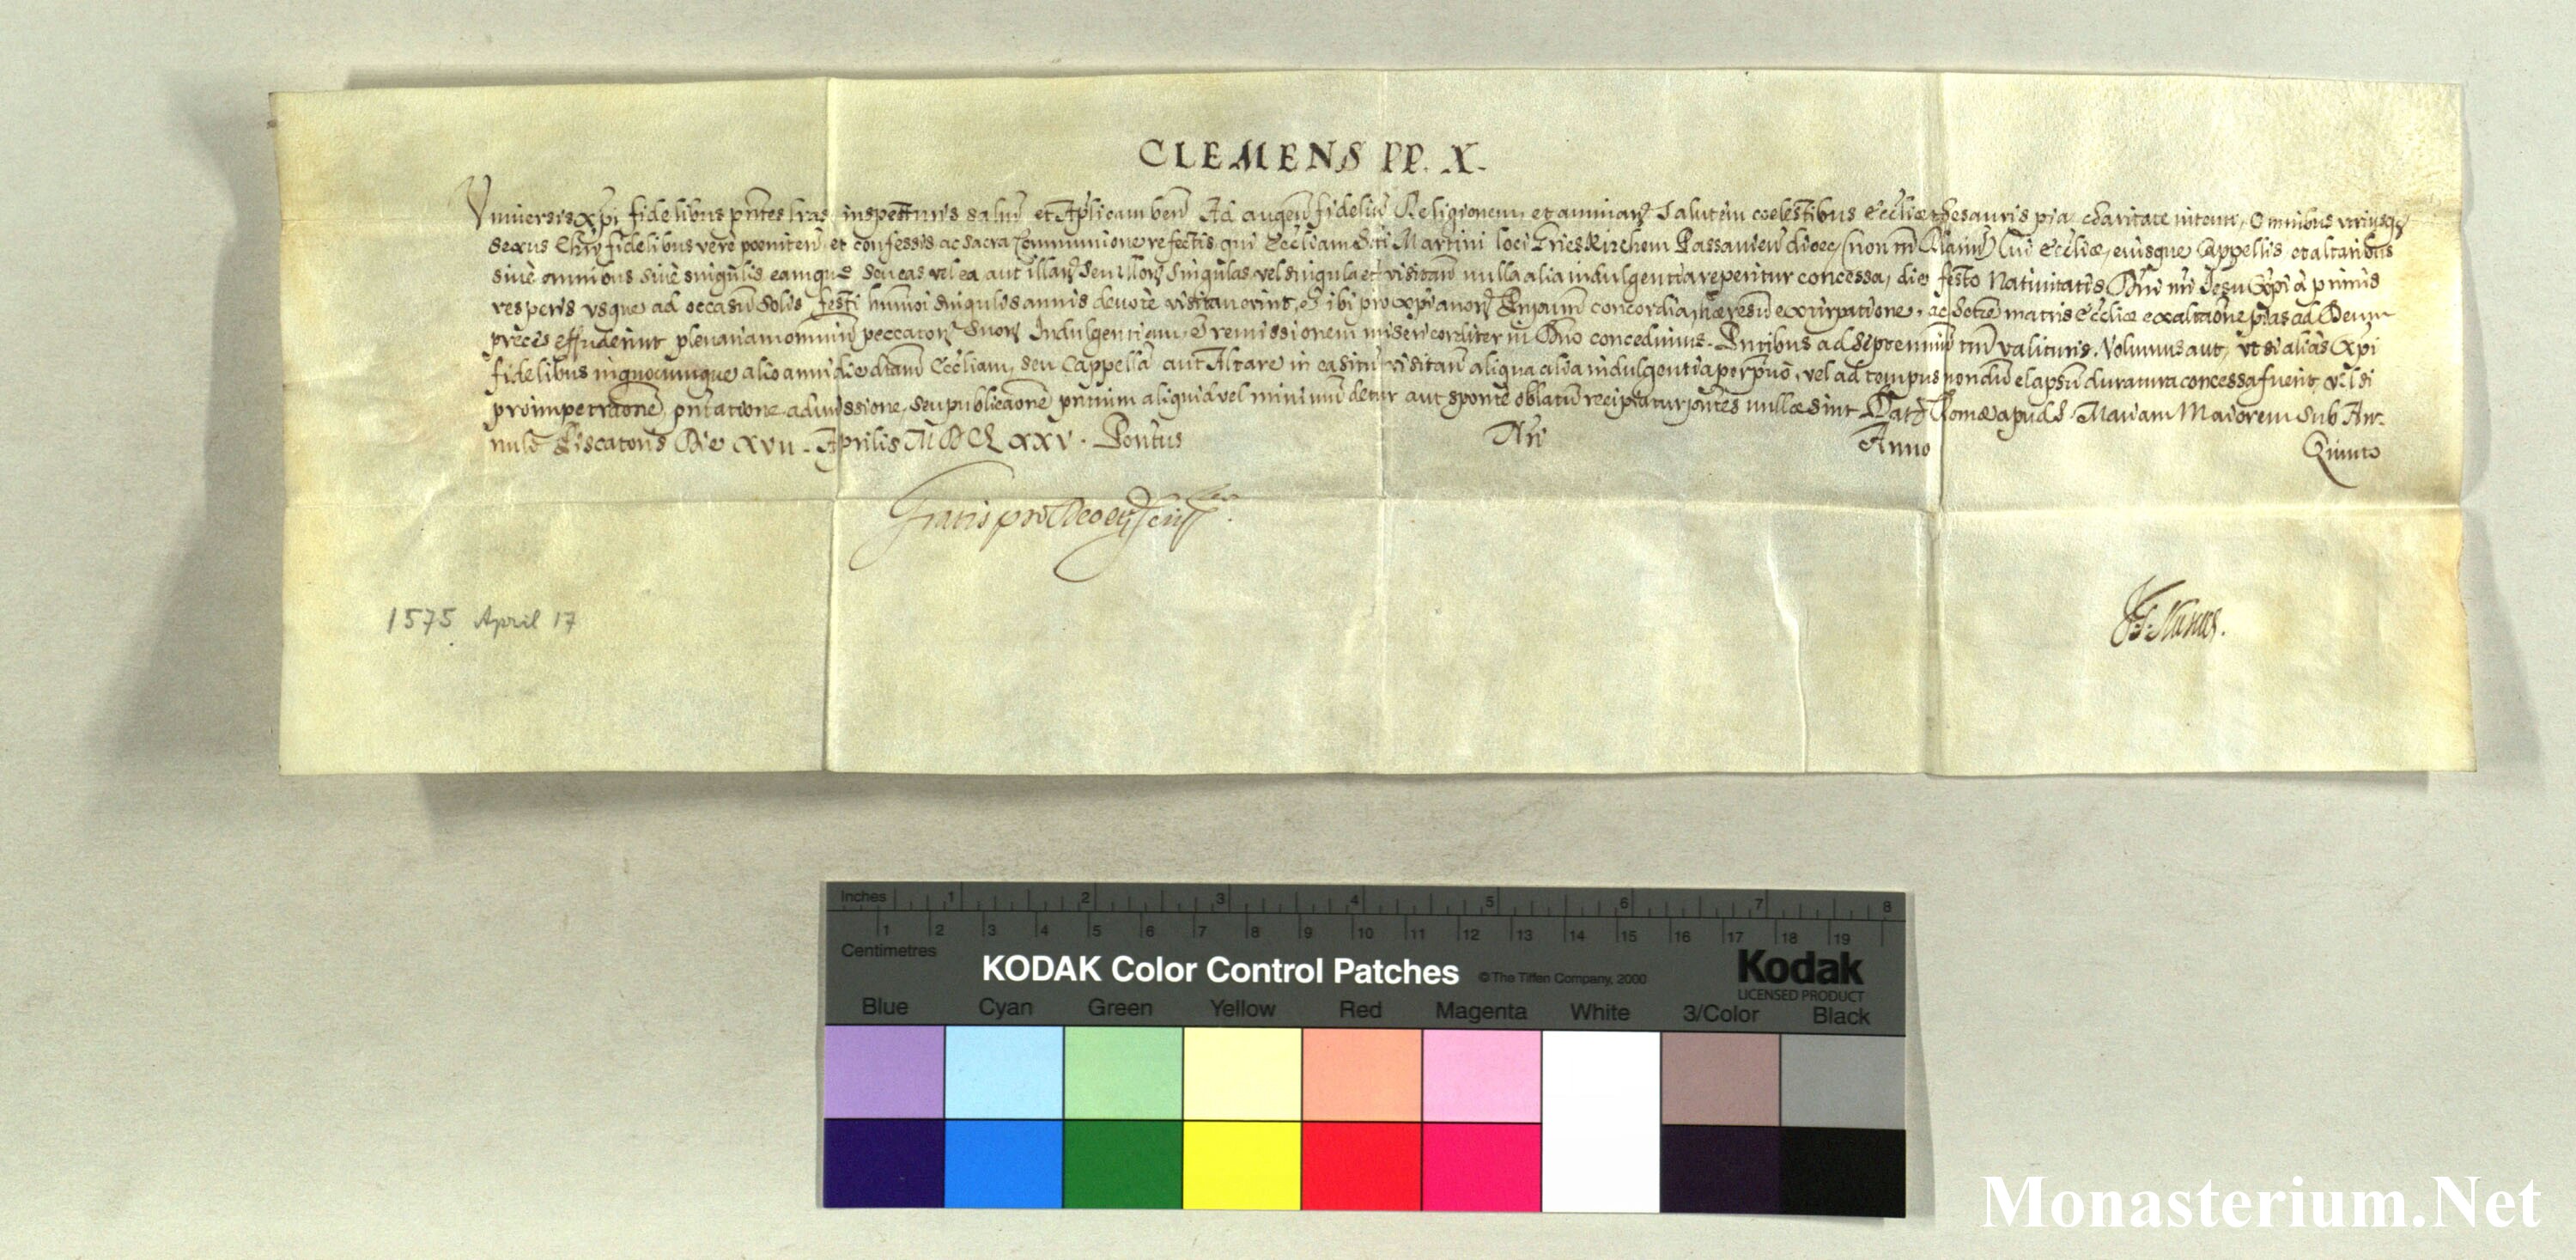 CLEMENS PP. X.
Universis Xpi fidelibus pñtes lras inspecturis salut̃ et Aplicam ben̄ Ad augen̄ fidelium Religionem et animarꝝ Salutem coelestibus Eccliæ thesauris pia charitate intenti, Omnibus utriusqȝ
sexus Chri fidelibus verè poeniten̄ et confessis ac sacra Communione refectis, qui Eccliam Sti Martini loci Krieskirchem Passavien̄ dioec, (non tn̄ ) Eccliæ, eiusque Cappellis et altaribus
sive omnibus sive singulis eamque seu eas vel ea aut illarꝝ seu illorꝝ singulas vel singula et visitan̄ nulla alia indulgentia reperitur concessa, die festo Nativitatis Dñi ñri Jesu Xpi à primis
vesperis usque ad occasum solis festi hmm̃oi singulis annis devotè visitaverint, et ibi pro xpianorꝝ Prpum̃ concordia, hæresum̃ extirpatione, ac Sctæ matris Eccliæ exaltãone pias ad Deum
preces effuderint plenariam omnium̃ peccatorꝝ suorꝝ Indulgentiam, et remissionem misericorditer in Dño concedimus. Pñtibus ad septennium̃ tm̃ valituris. Volumus aut, ut si alias Xpi
fidelibus in quocumque alio anni die dictam̃ Eccliam, seu Cappellam̃ aut Altare in ea situm̃ visitan̄ aliqua alia indulgentia perpetuò, vel ad tempus nondum̃ elapsum̃ duratura concessa fuerit, vel si
pro impetratione, pñtatione admissione, seu publicãone pñtium aliquid vel minimum̃ detur aut sponte oblatum̃ recipiatur pñtes nullæ sint Datꝝ Romæ apud S. Mariam Maiorem sub An-
nulo Piscatoris Die XVII. Aprilis MDCLXXV. Pontus Ñri Anno Quinto
Gratis pro Deo et Script
1575 April 17
Inches 1 2 3 4 5 6 7 8
1 2 3 4 5 6 7 8 9 10 11 12 13 14 15 16 17 18 19
Centimetres
KODAK Color Control Patches © The Tiffen Company, 2000 Kodak
LICENSED PRODUCT
Blue Cyan Green Yellow Red Magenta White 3/Color Black
Monasterium.Net